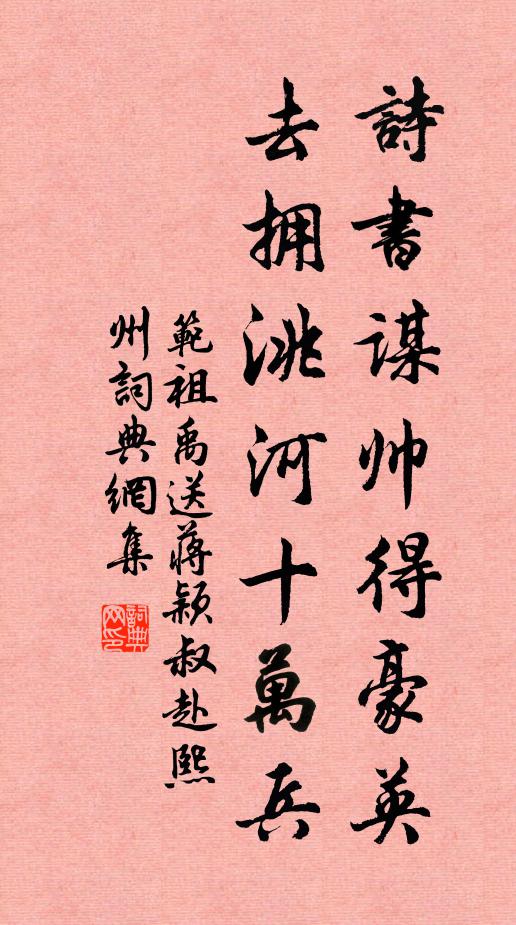 詩書謀帅得豪英
去拥洮河十萬兵
範祖禹送蔣颖叔赴熙
州詞典網集
詞典网印